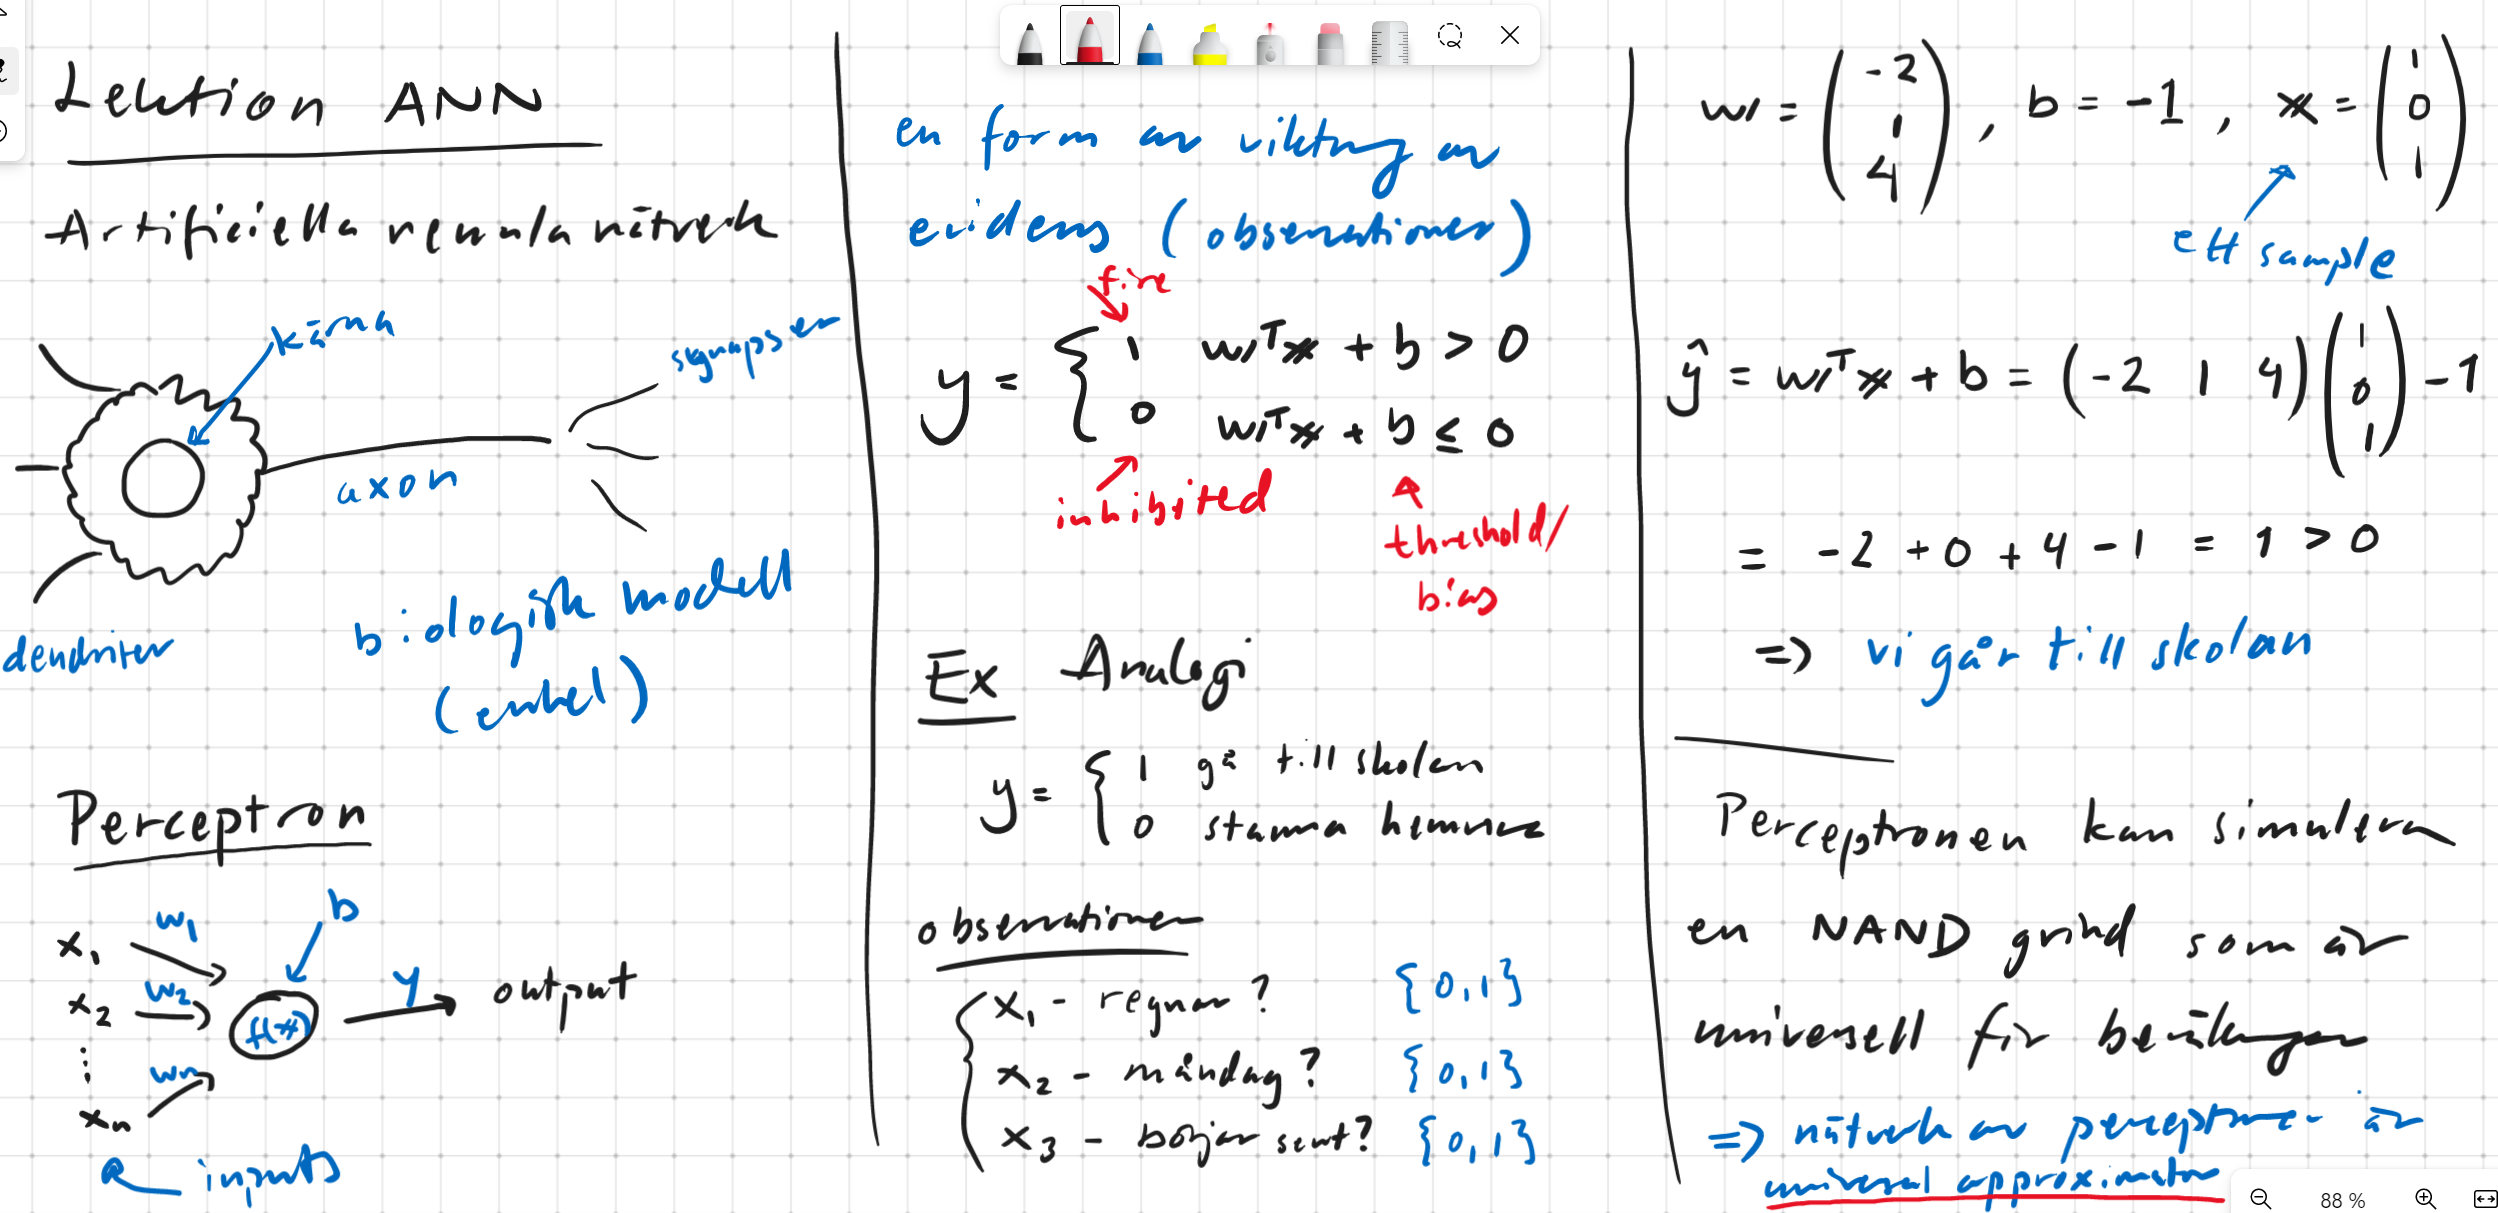 Lektion ANN
Artificiella neurala nätverk
kärna
synapser
axon
dendriter
biologisk modell
(enkel)
Perceptron
b
w1
x1
w2
y
x2
f(x)
output
⋮
wn
xn
inputs
en form av viktning av
evidens (observationer)
fire
y = { 1 wᵀx + b > 0
0 wᵀx + b ≤ 0
inhibited
threshold/
bias
Ex Analogi
y = { 1 gå till skolan
0 stanna hemma
observationer
x1 - regnar? {0,1}
x2 - måndag? {0,1}
x3 - börjar sent? {0,1}
w = (-2 1 4), b = -1, x = (1 0 1)
ett sample
ŷ = wᵀx + b = (-2 1 4) (1 0 1) - 1
= -2 + 0 + 4 - 1 = 1 > 0
=> vi går till skolan
Perceptronen kan simulera
en NAND grind som är
universell för beräkningar
=> nätverk av perceptroner är
universal approximator
88 %